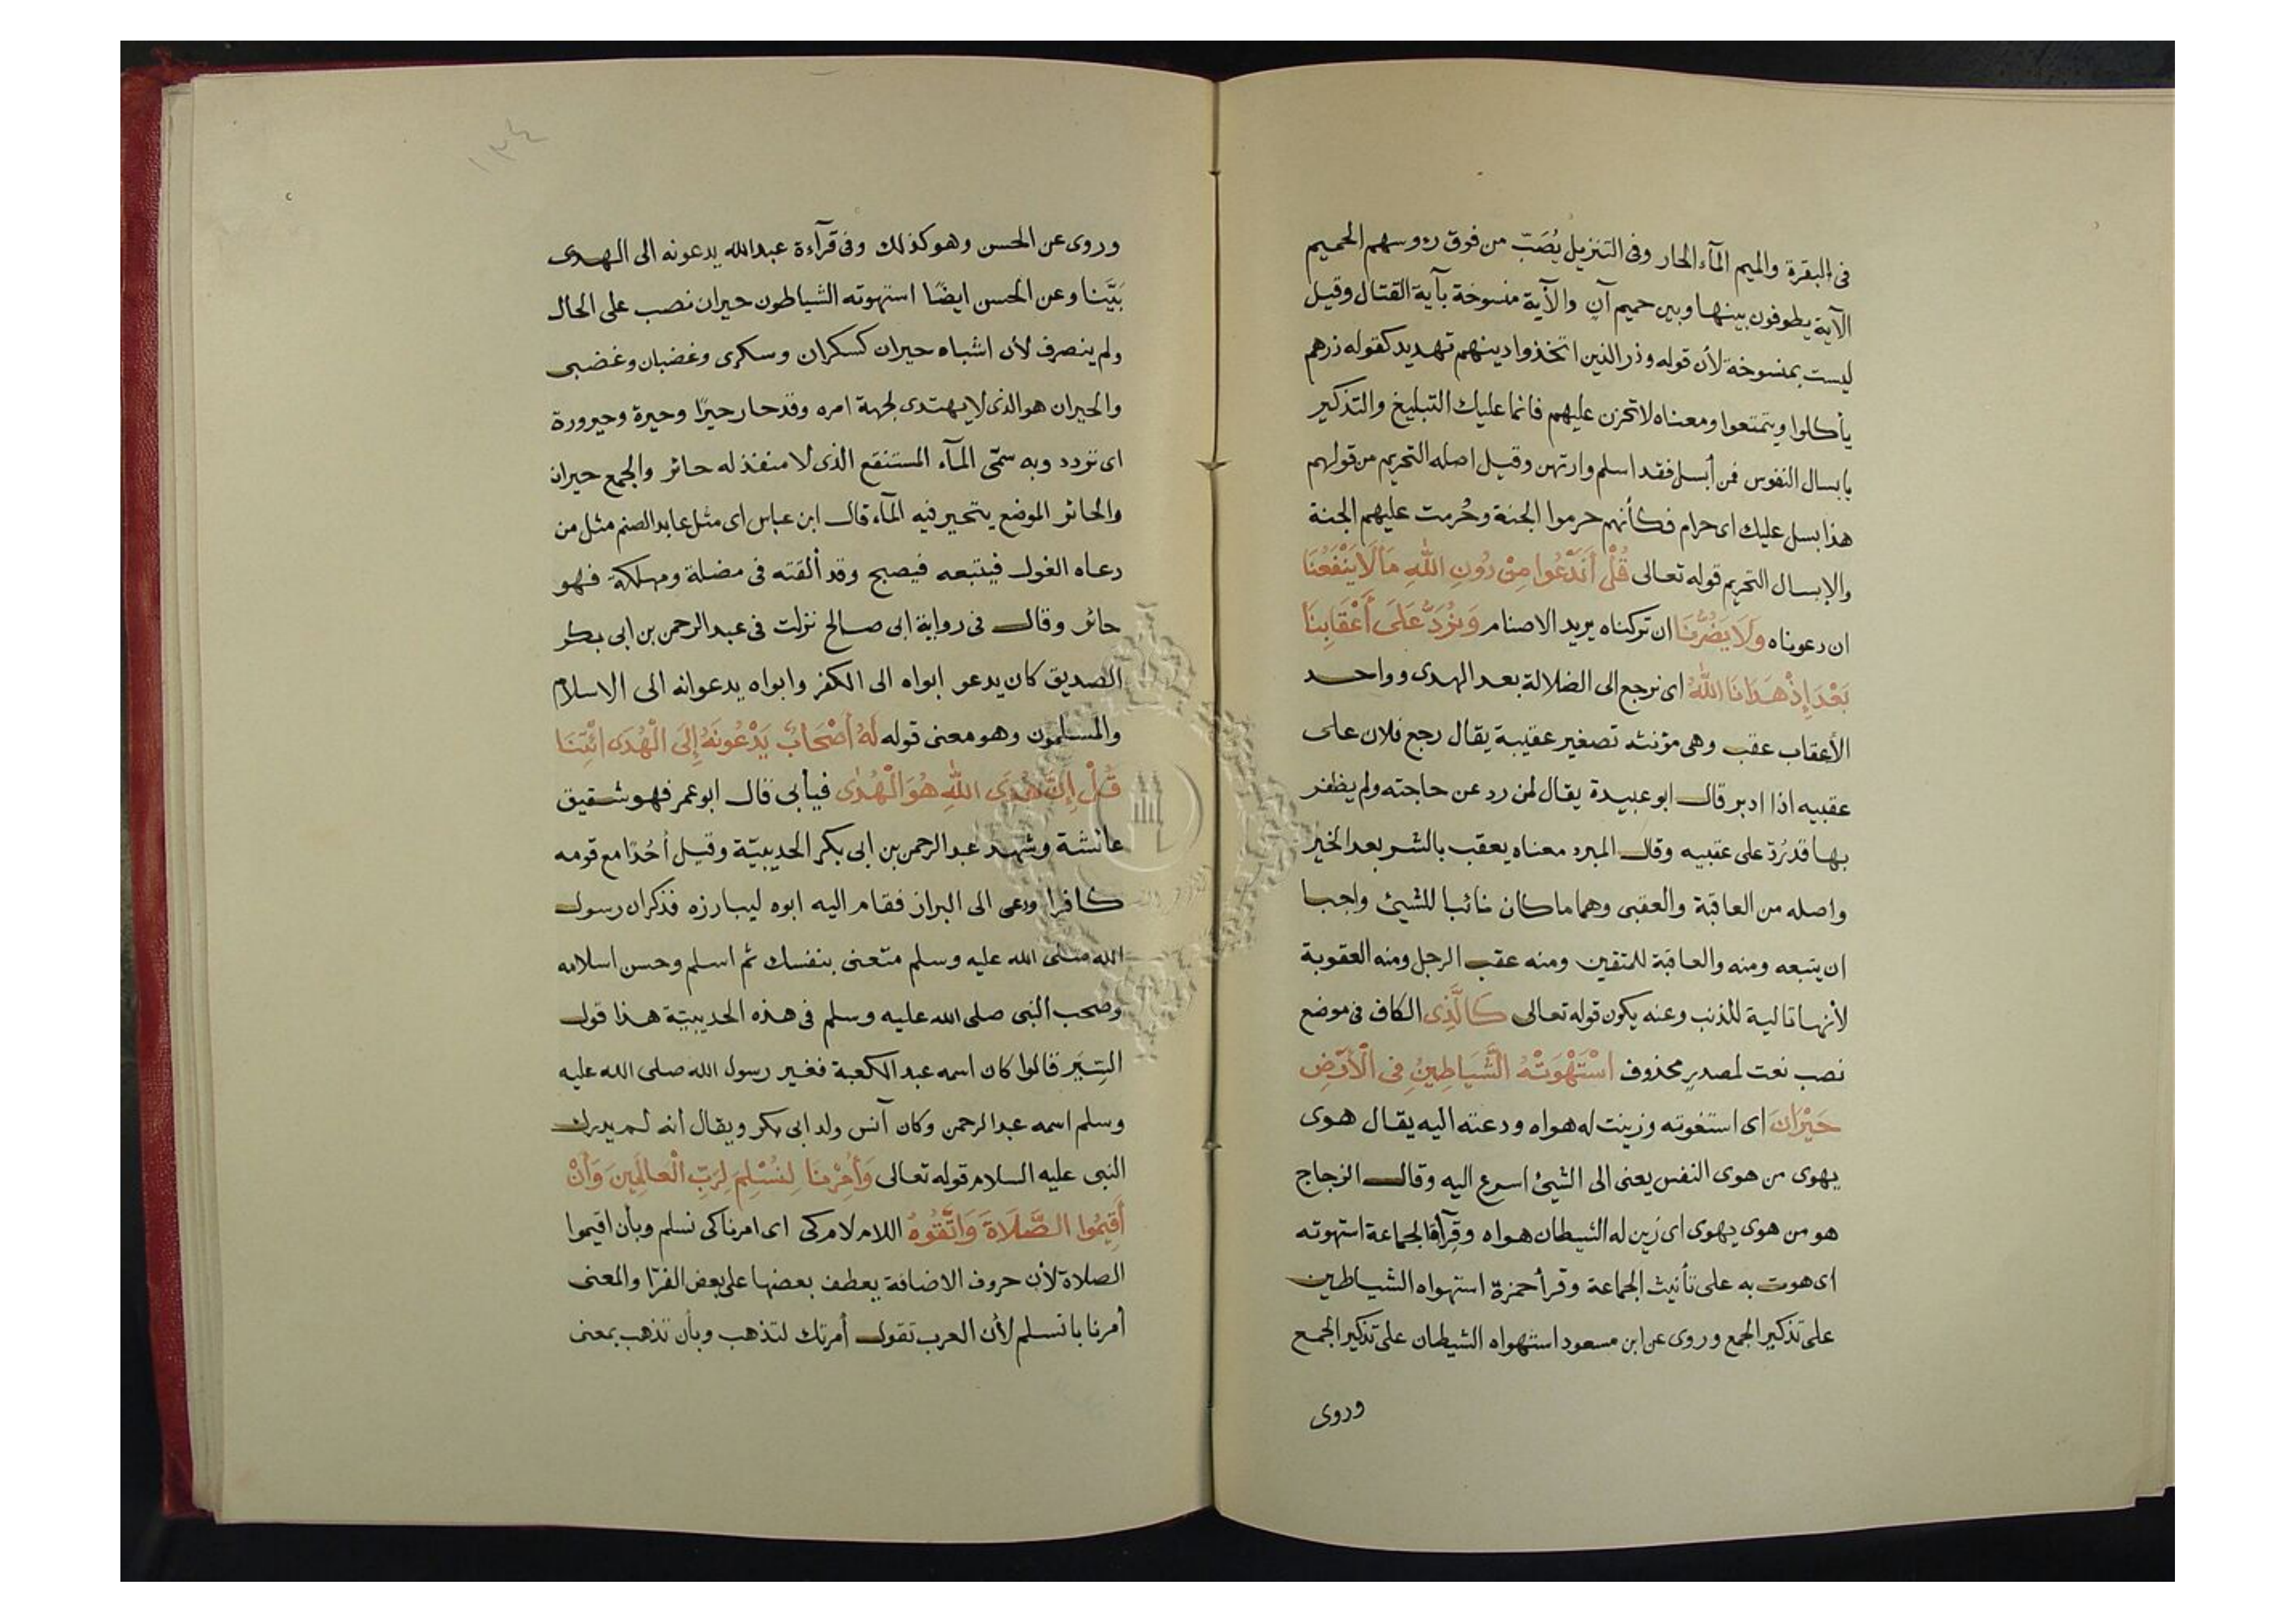 فى البقرة والميم المآء الحار وفى التنزيل يُصَبّ من فوق رءوسهم الحميم
الآية يطوفون بينها وبين حميم آنٍ والآية منسوخة بآية القتال وقيل
ليست بمنسوخة لأن قوله وذر الذين اتخذوا دينهم تهديد كقوله ذرهم
يأكلوا ويتمتعوا ومعناه لا تحزن عليهم فانما عليك التبليغ والتذكير
بابسال النفوس فمن أبسل فقد اسلم وارتهن وقيل اصله التحريم من قولهم
هذا بسل عليك اى حرام فكأنهم حرموا الجنة وحُرمت عليهم الجنة
والابسال التحريم قوله تعالى قُلْ أَنَدْعُوا مِنْ دُونِ اللهِ مَا لَا يَنْفَعُنَا
ان دعوناه وَلَا يَضُرُّنَا ان تركناه يريد الاصنام وَنُرَدُّ عَلَى أَعْقَابِنَا
بَعْدَ إِذْ هَدَانَا اللهُ اى نرجع الى الضلالة بعد الهدى وواحد
الأعقاب عقب وهى مؤنثه تصغير عقيبة يقال رجع فلان على
عقبيه اذا ادبر قال ابو عبيدة يقال لمن رد عن حاجته ولم يظفر
بها قد رُدّ على عقبيه وقال المبرد معناه يعقب بالشر بعد الخير
واصله من العاقبة والعقبى وهما ما كان تائبا للشيئ واجبا
ان يتبعه ومنه والعاقبة للمتقين ومنه عقب الرجل ومنه العقوبة
لأنها تالية للذنب وعنه يكون قوله تعالى كَالَّذِى الكاف فى موضع
نصب نعت لمصدرٍ محذوف اسْتَهْوَتْهُ الشَّيَاطِينُ فِى الْأَرْضِ
حَيْرَانَ اى استغوته وزينت له هواه ودعته اليه يقال هوى
يهوى من هوى النفس يعنى الى الشيئ اسرع اليه وقال الزجاج
هو من هوى يهوى اى زين له الشيطان هواه وقرآة الجماعة استهوته
اى هوت به على تأنيث الجماعة وقرأ حمزة استهواه الشياطين
على تذكير الجمع وروى عن ابن مسعود استهواه الشيطان على تذكير الجمع
وروى
١٣٤
وروى عن الحسن وهو كذلك وفى قرآءة عبدالله يدعونه الى الهدى
بَيَّنا وعن الحسن ايضًا استهوته الشياطون حيران نصب على الحال
ولم ينصرف لأن اشباه حيران كسكران وسكرى وغضبان وغضبى
والحيران هو الذى لا يهتدى لجهة امره وقد حار حيرًا وحيرة وحيرورة
اى تردد وبه سمّى المآء المستنقع الذى لا منفذ له حائر والجمع حيران
والحائر الموضع يتحير فيه المآء قال ابن عباس اى مثل عابد الصنم مثل من
دعاه الغول فيتبعه فيصبح وقد ألقته فى مضلة ومهلكة فهو
حائر وقال فى رواية ابى صالح نزلت فى عبد الرحمن بن ابى بكر
الصديق كان يدعو ابواه الى الكفر وابواه يدعوانه الى الاسلام
والمسلمون وهو معنى قوله لَهُ أَصْحَابٌ يَدْعُونَهُ إِلَى الْهُدَى ائْتِنَا
قُلْ إِنَّ هُدَى اللهِ هُوَ الْهُدَى فيأبى قال ابو عمر فهو شقيق
عائشة وشهد عبد الرحمن بن ابى بكر الحديبيّة وقيل أحُدًا مع قومه
كافرا ودعى الى البراز فقام اليه ابوه ليبارزه فذكر ان رسول
الله صلى الله عليه وسلم متعنى بنفسك ثم اسلم وحسن اسلامه
وصحب النبى صلى الله عليه وسلم فى هذه الحديبيّة هذا قول
السِّيَر قالوا كان اسمه عبد الكعبة فغير رسول الله صلى الله عليه
وسلم اسمه عبد الرحمن وكان آنس ولد ابى بكر ويقال أنه لم يدرك
النبى عليه السلام قوله تعالى وَأُمِرْنَا لِنُسْلِمَ لِرَبِّ الْعَالَمِينَ وَأَنْ
أَقِيمُوا الصَّلَاةَ وَاتَّقُوهُ اللام لام كى اى امرنا كى نسلم وبأن اقيموا
الصلاة لأن حروف الاضافة يعطف بعضها على بعض الفرّا والمعنى
أمرنا با نسلم لأن العرب تقول أمرتك لتذهب وبأن تذهب بمعنى